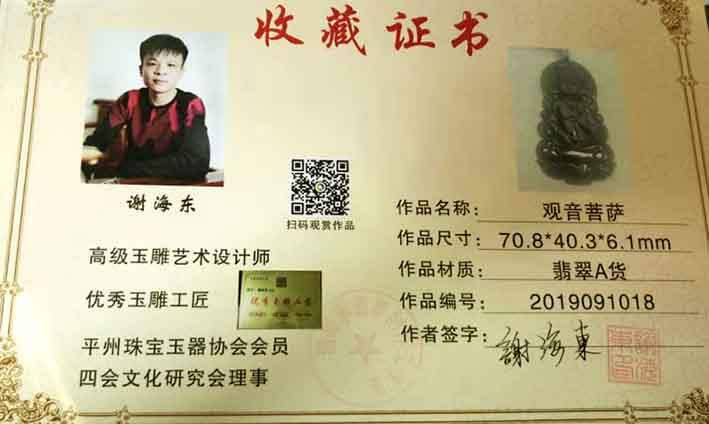 收藏证书
谢海东
扫码观赏作品
高级玉雕艺术设计师
优秀玉雕工匠
平州珠宝玉器协会会员
四会文化研究会理事
作品名称: 观音菩萨
作品尺寸: 70.8*40.3*6.1mm
作品材质: 翡翠A货
作品编号: 2019091018
作者签字: 謝海東